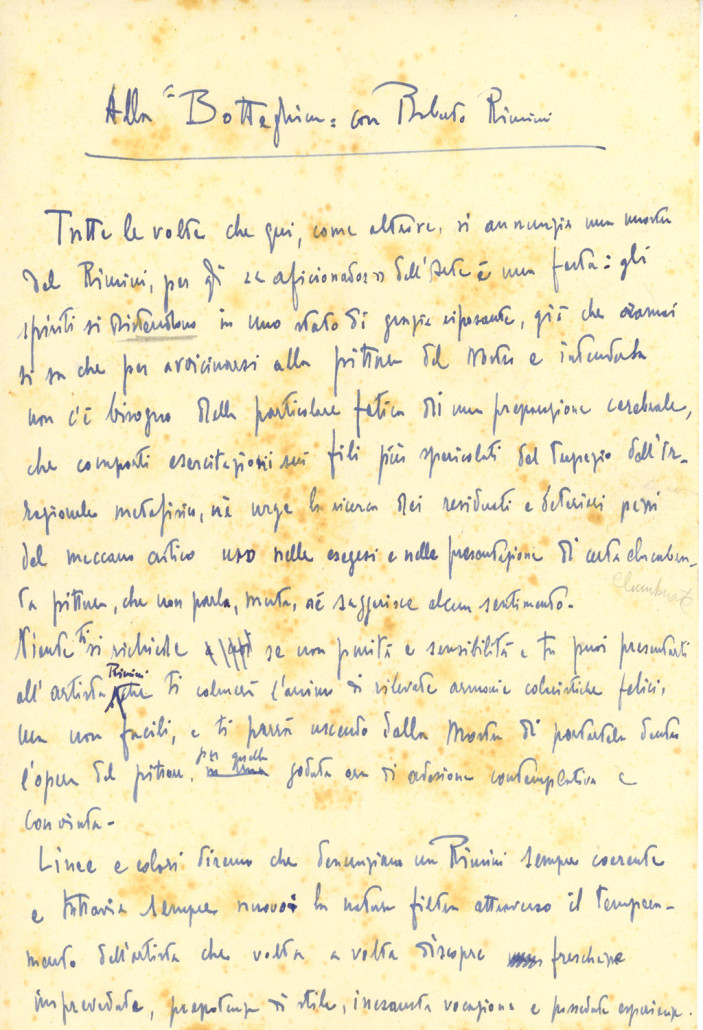 Alla "Botteghina" con Roberto Rimini
Tutte le volte che qui, come altrove, si annunzia una mostra
del Rimini, per gli "aficionados" dell'Arte è una festa: gli
spiriti si distendono in uno stato di grazia riposante, già che oramai
si sa che per avvicinarsi alla pittura del Nostro e intenderla
non c'è bisogno della particolare fatica di una preparazione cerebrale,
che comporti esercitazioni sui fili più spericolati del trapezio dell'ir-
razionale metafisico, né urge la ricerca dei residuati e deteriori pezzi
del meccano critico uso nelle esegesi e nelle presentazione di certa
ta pittura, che non parla, muta, né suggerisce alcun sentimento.
Niente ti si richiede se non purità e sensibilità e tu puoi presentarti
all'artista Rimini che ti colmerà l'animo di rilevate armonie coloristiche felici,
ma non facili, e ti parrà uscendo dalla Mostra di portartela dentro
l'opera del pittore, per quella goduta ora di adesione contemplativa e
convinta.
Linee e colori diremo che denunziano un Rimini sempre coerente
e tuttavia sempre nuovo: la natura filtra attraverso il tempera-
mento dell'artista che volta a volta discopre freschezze
imprevedute, prepotenza di stile, inesausta vocazione e posseduta esperienza.